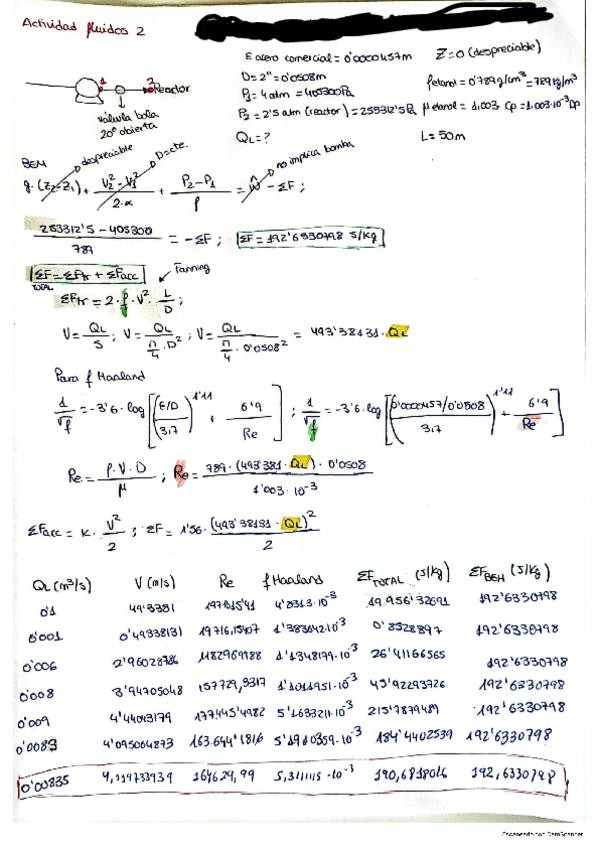 Actividad fluidos 2
E acero comercial = 0'0000457m
Z=0 (despreciable)
D=2"=0'0508m
P1 = 4 atm = 405300Pa
P2 = 2'5 atm (reactor) = 253312'5 Pa
QL = ?
ρetanol = 0'789 g/cm³ = 789 kg/m³
μ etanol = 1,003 Cp = 1.003·10⁻³
L = 50m
1
2
Reactor
válvula bola
20º abierta
BEM
despreciable
D=cte.
no implica bomba
g·(Z2-Z1) + V2²-V1²/2·α + P2-P1/ρ = Ŵ - ΣF ;
253312'5 - 405300/789 = -ΣF ; ΣF = 192'6330798 J/kg
ΣF = ΣFtr + ΣFacc
TOTAL
Fanning
ΣFtr = 2·f·V²·L/D ;
V = QL/S ; V = QL/(π/4·D²) ; V = QL/(π/4·0'0508²) = 493'38131·QL
Para f Haaland
1/√f = -3'6·log[((E/D)/3,7)^1'11 + 6'9/Re] ; 1/√f = -3'6·log[((0'0000457/0'0508)/3,7)^1'11 + 6'9/Re]
Re = ρ·V·D/μ ; Re = 789·(493'381·QL)·0'0508/1'003·10⁻³
ΣFacc = K·V²/2 ; ΣF = 1'56·(493'38131·QL)²/2
QL (m³/s) V (m/s) Re f Haaland ΣF TOTAL (J/kg) ΣF BEM (J/kg)
0'1 49'3381 4'8313·10⁻³ 19.956'32691 192'6330798
0'001 0'49338131 19716,15407 0'8328897 192'6330798
0'006 2'96028786 26'41166565 192'6330798
0'008 3'94705048 157729,2317 45'92293726 192'6330798
0'009 4'44043179 177445'4982 5'1633211·10⁻³ 215'7879489 192'6330798
0'0083 4'095064873 163.644'1816 5'1910359·10⁻³ 184'4402539 192'6330798
0'00835 4,119733939 164629,99 190,6818046 192,6330798
Escaneado con CamScanner